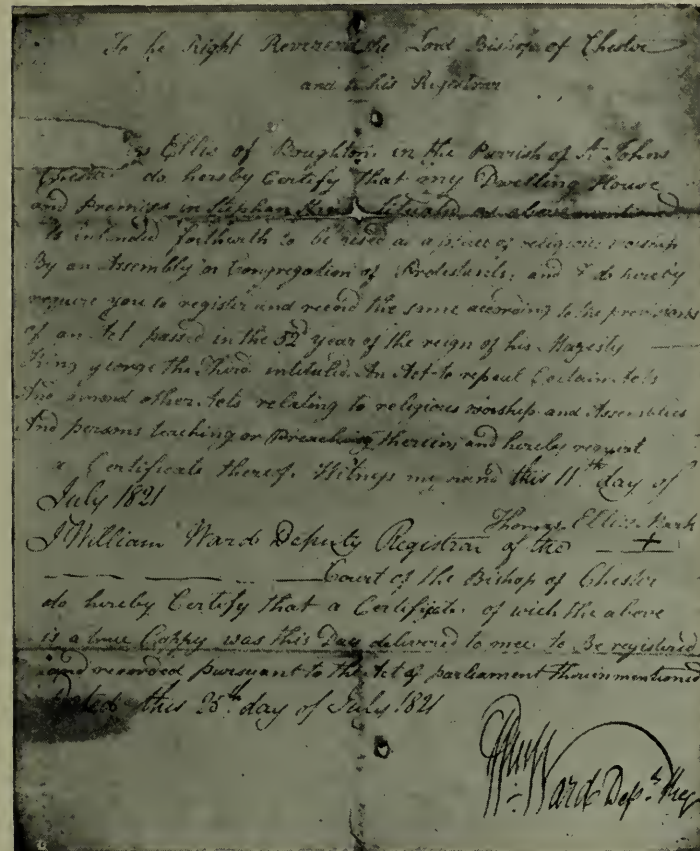 To he Right Reverend the Lord Bishop of Chester
and to his Registrar
Ellis of Boughton in the Parrish of St Johns
Chester do hereby Certify that my Dwelling House
and Premises in Stephan Situated as above mentioned
Is intended forthwith to be used as a place of religious worship
By an Assembly or Congregation of Protestants; and I do hereby
require you to register and record the same according to the provisions
of an Act passed in the 52d year of the reign of his Magesty
King george the Third intituled An Act to repeal Certain Acts
And amend other Acts relating to religious worship and Assemblies
And persons teaching or Preaching therein; and hereby request
a Certificate thereof. Witness my hand this 11th day of
July 1821
Thomas Ellis Mark
I William Ward Deputy Registrar of the +
Court of the Bishop of Chester
do hereby Certify that a Certificate of wich the above
is a true Coppy was this Day delivered to mee to Be registered
and recorded pursuant to the Act of parliament therin mentioned
Dated this 25th day of July 1821
Wm Ward Depy Reg